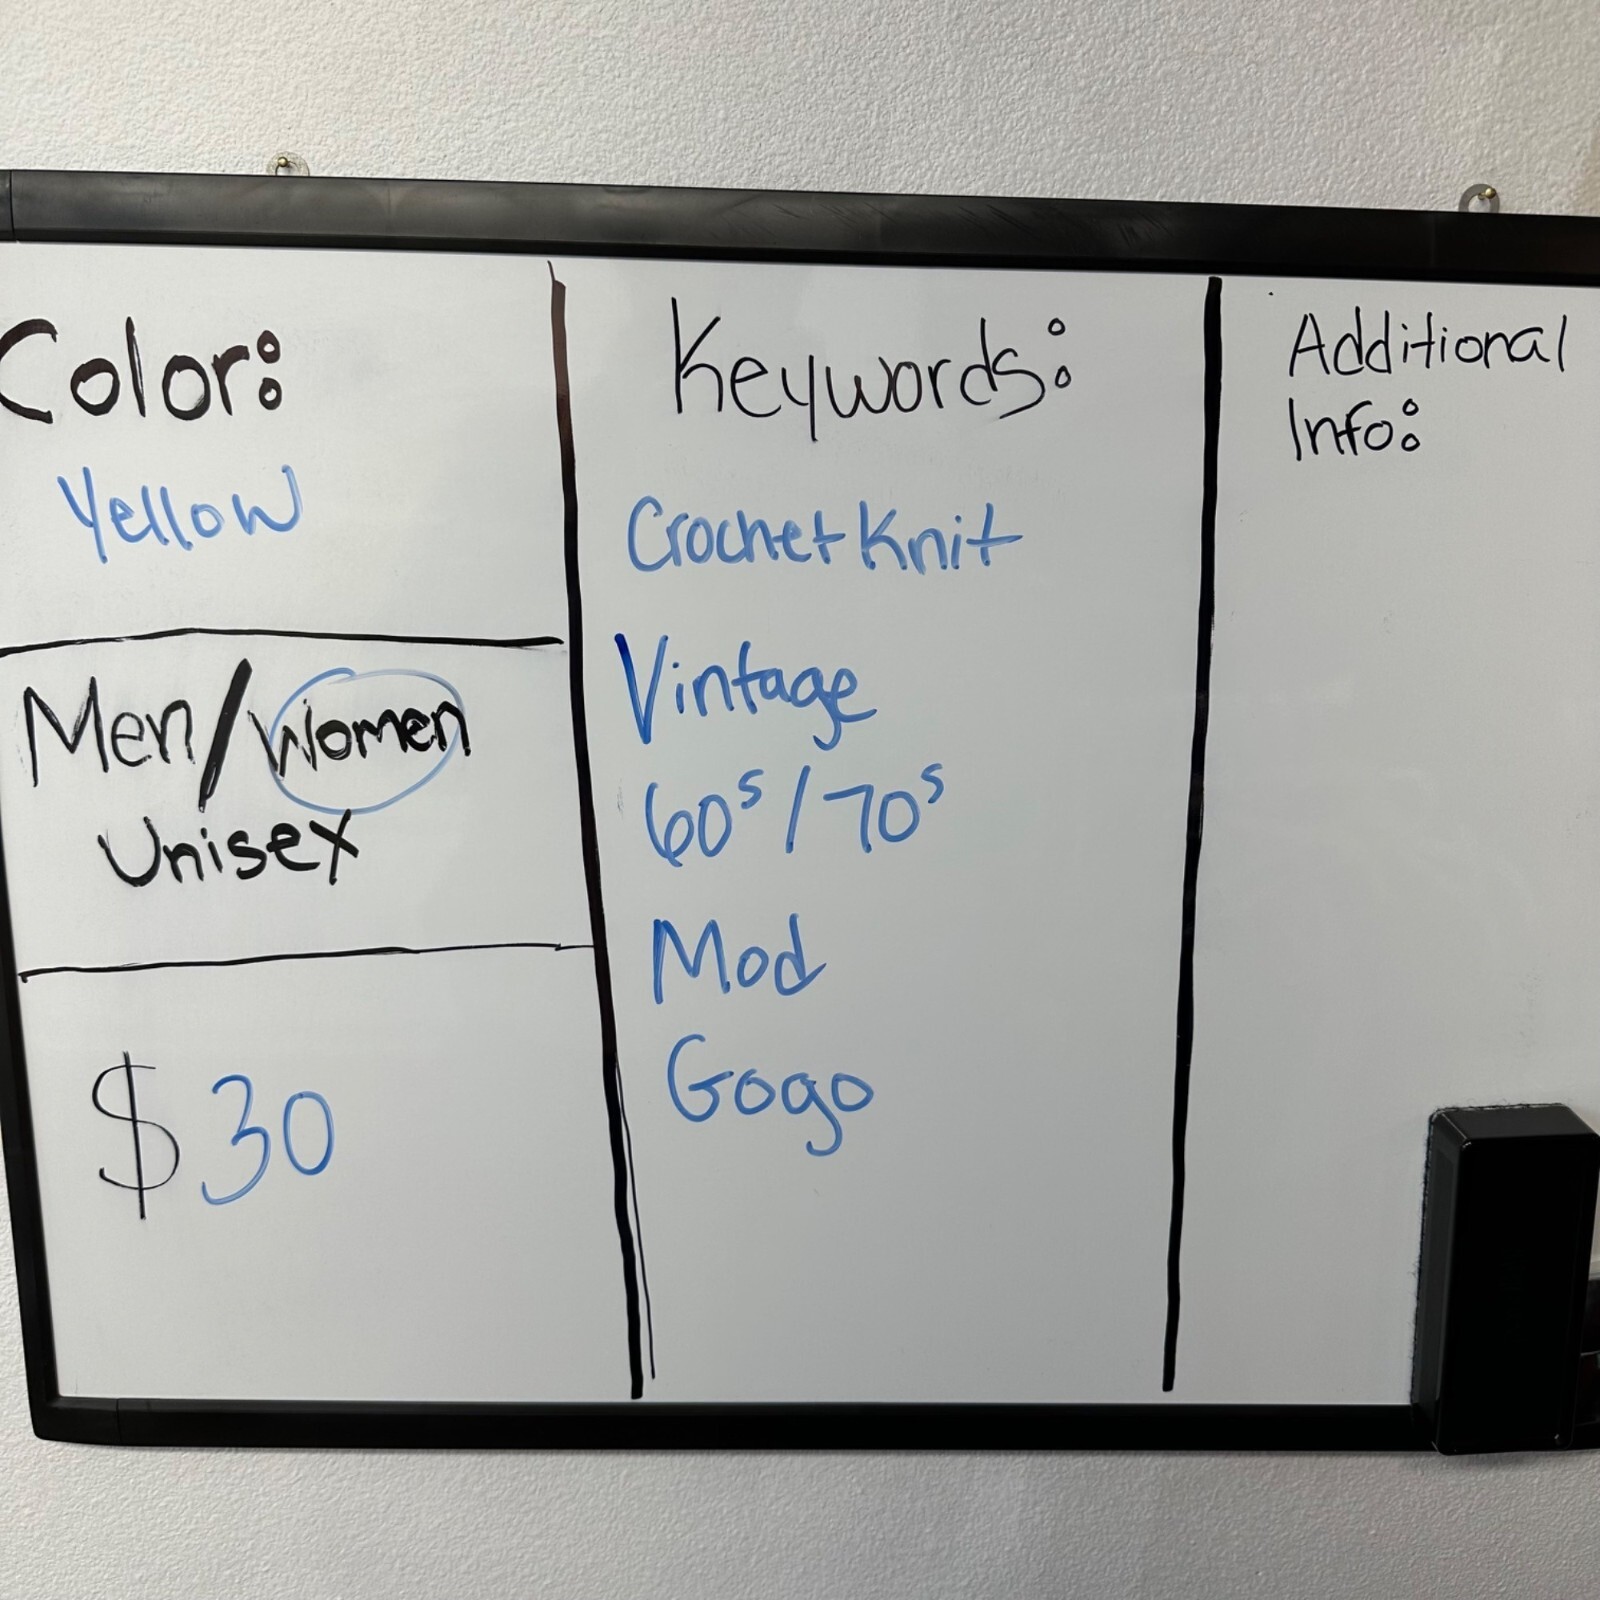 Color:
Yellow
Men/Women
Unisex
$30
Keywords:
Crochet Knit
Vintage
60s/70s
Mod
Gogo
Additional
Info: